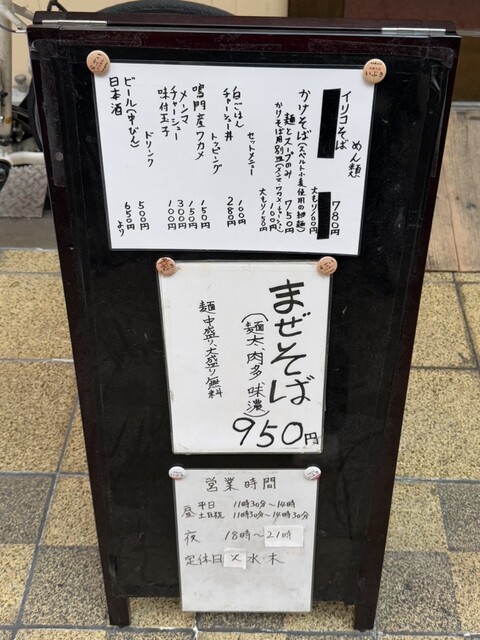 めん類
イリコそば 780円
大もり100円
かけそば(スペルト小麦使用の細麺)
麺とスープのみ 750円
かけそば用別皿(メンマ・ワカメ・チャーシュー)
100円
大もり150円
セットメニュー
白ごはん 100円
チャーシュー丼 280円
トッピング
鳴門産ワカメ 150円
メンマ 150円
チャーシュー 300円
味付玉子 100円
ドリンク
ビール(中びん) 500円
日本酒 650円より
まぜそば
(麺太、肉多、味濃)
950円
麺中盛り、大盛り無料
営業時間
昼 平日 11時30分~14時
土日祝 11時30分~14時30分
夜 18時~21時
定休日 火・水・木